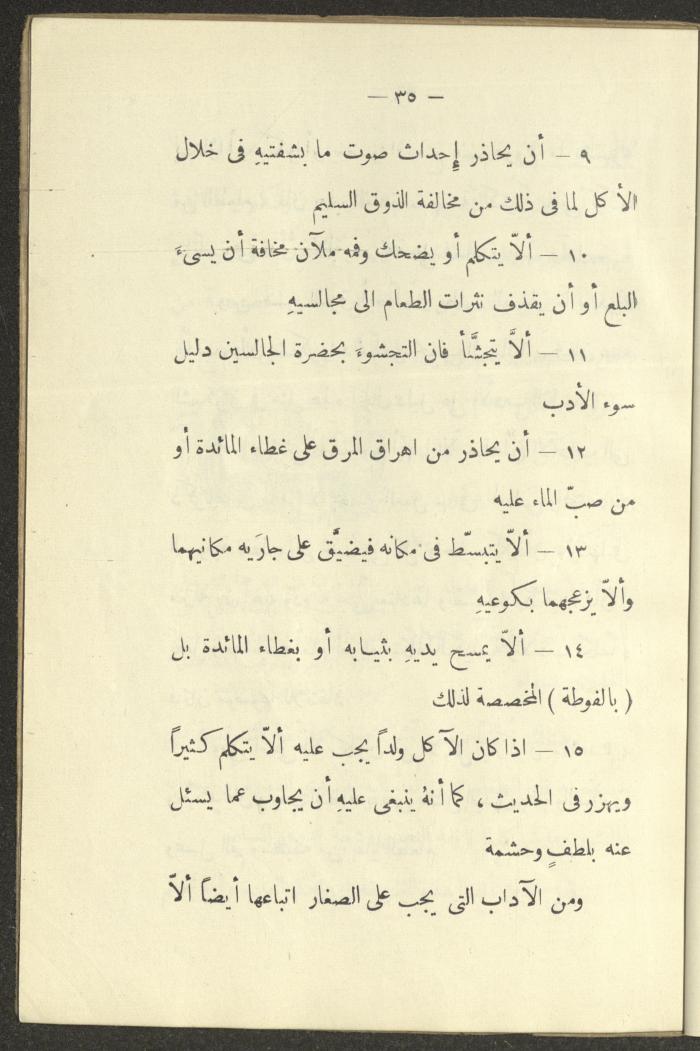 — ٣٥ —
٩ — أن يحاذر إِحداث صوت ما بشفتيهِ فى خلال
الأكل لما فى ذلك من مخالفة الذوق السليم
١٠ — ألاّ يتكلم أو يضحك وفمه ملآن مخافة أن يسىءَ
البلع أو أن يقذف نثرات الطعام الى مجالسيهِ
١١ — ألاَّ يتجشَّأ فان التجشوءَ بحضرة الجالسين دليل
سوء الأدب
١٢ — أن يحاذر من اهراق المرق على غطاء المائدة أو
من صبّ الماء عليه
١٣ — ألاّ يتبسّط فى مكانه فيضيَّق على جارَيه مكانيهما
وألاّ يزعجهما بكوعيهِ
١٤ — ألاّ يمسح يديهِ بثيابه أو بغطاء المائدة بل
( بالفوطة ) المخصصة لذلك
١٥ — اذا كان الآكل ولداً يجب عليه ألاّ يتكلم كثيراً
ويهزر فى الحديث ، كما أنهُ ينبغى عليهِ أن يجاوب عما يسئل
عنه بلطفٍ وحشمة
ومن الآداب التى يجب على الصغار اتباعها أيضاً ألاّ